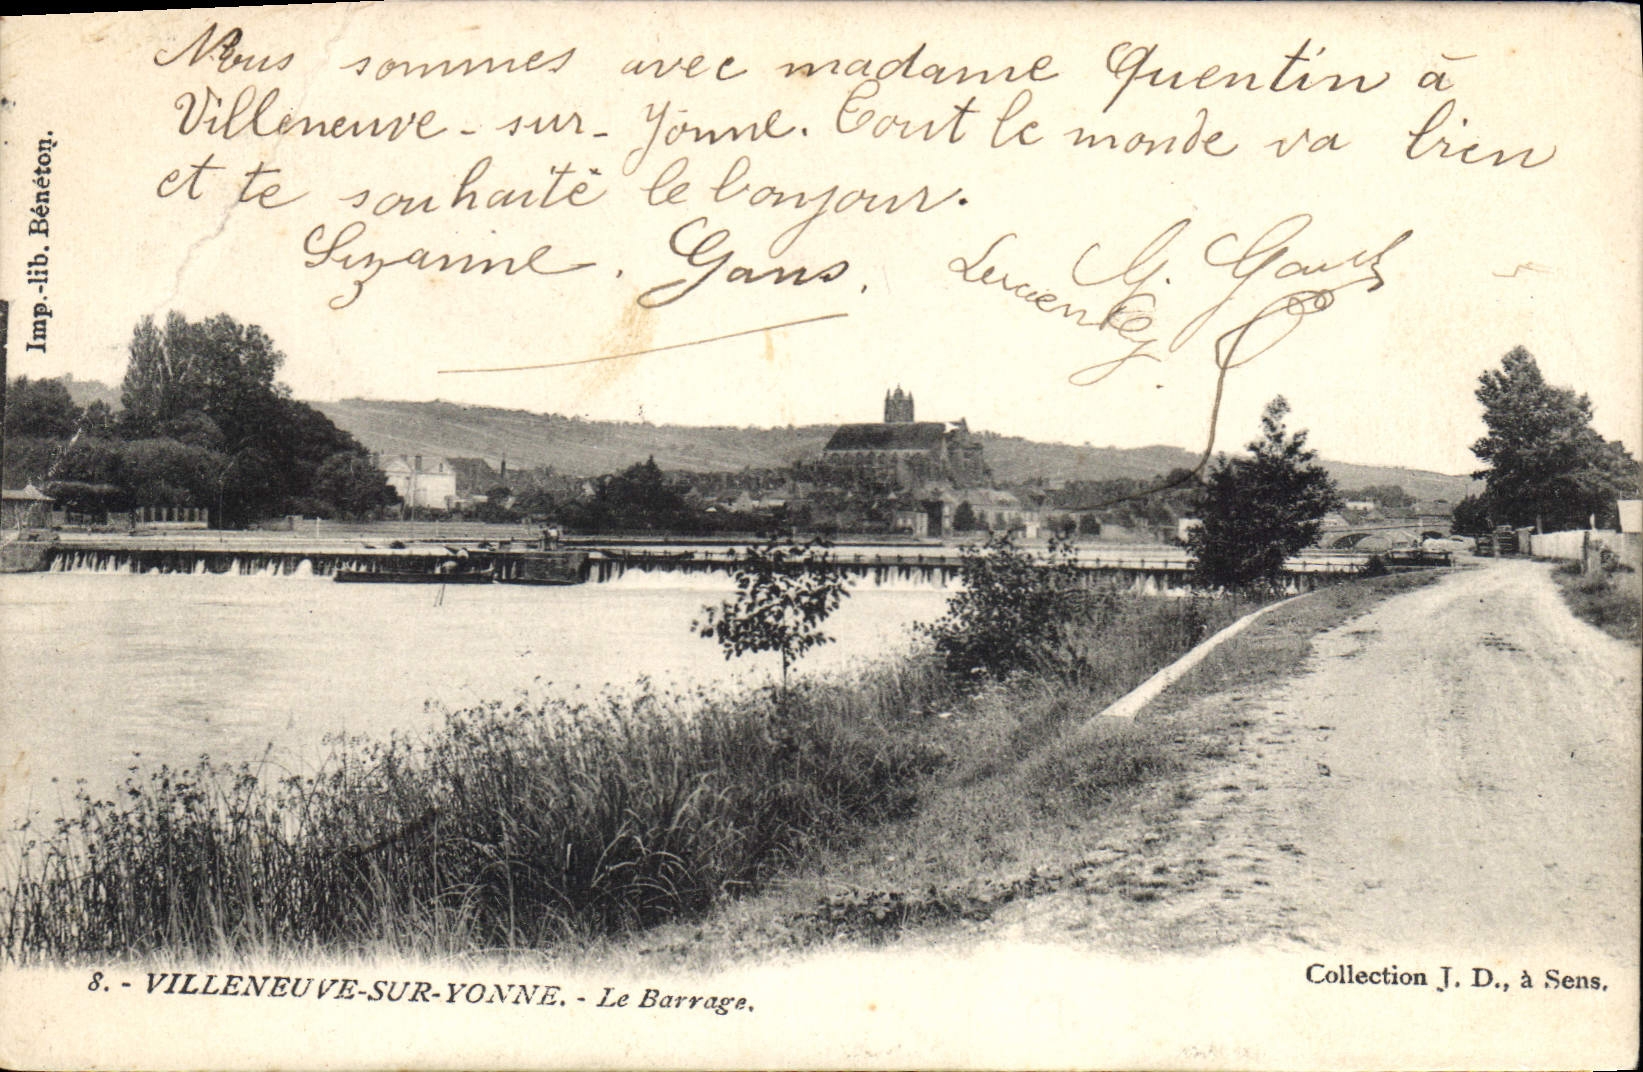 Nous sommes avec madame Quentin à
Villeneuve-sur-Yonne. Tout le monde va bien
et te souhaite le bonjour.
Suzanne. Gans. Lucienne G. G. Gans
Imp.-lib. Bénéton.
8. - VILLENEUVE-SUR-YONNE. - Le Barrage.
Collection J. D., à Sens.